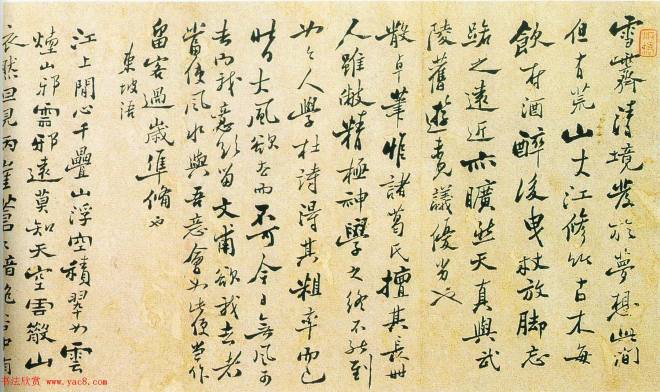 雪齋清境發於夢想此間
但有荒山大江修竹古木每
飲村酒醉後曳杖放脚忘
路之遠近亦曠然天真與武
陵舊遊議優劣也
散卓筆惟諸葛氏擅其長他
人雖敝精極神學之終不能到
如人學杜詩得其粗率而已
昨日大風欲去而不可今日無風可
去而我意欲留文甫欲我去者
當使風水與吾意會如此便當作
留客過歲準備也
東坡語
江上心千疊山浮空積翠如雲
煙山邪雲邪遠莫知天空雲散山
依然但見兩崖蒼蒼暗絕谷中有
书法欣赏 www.yac8.com